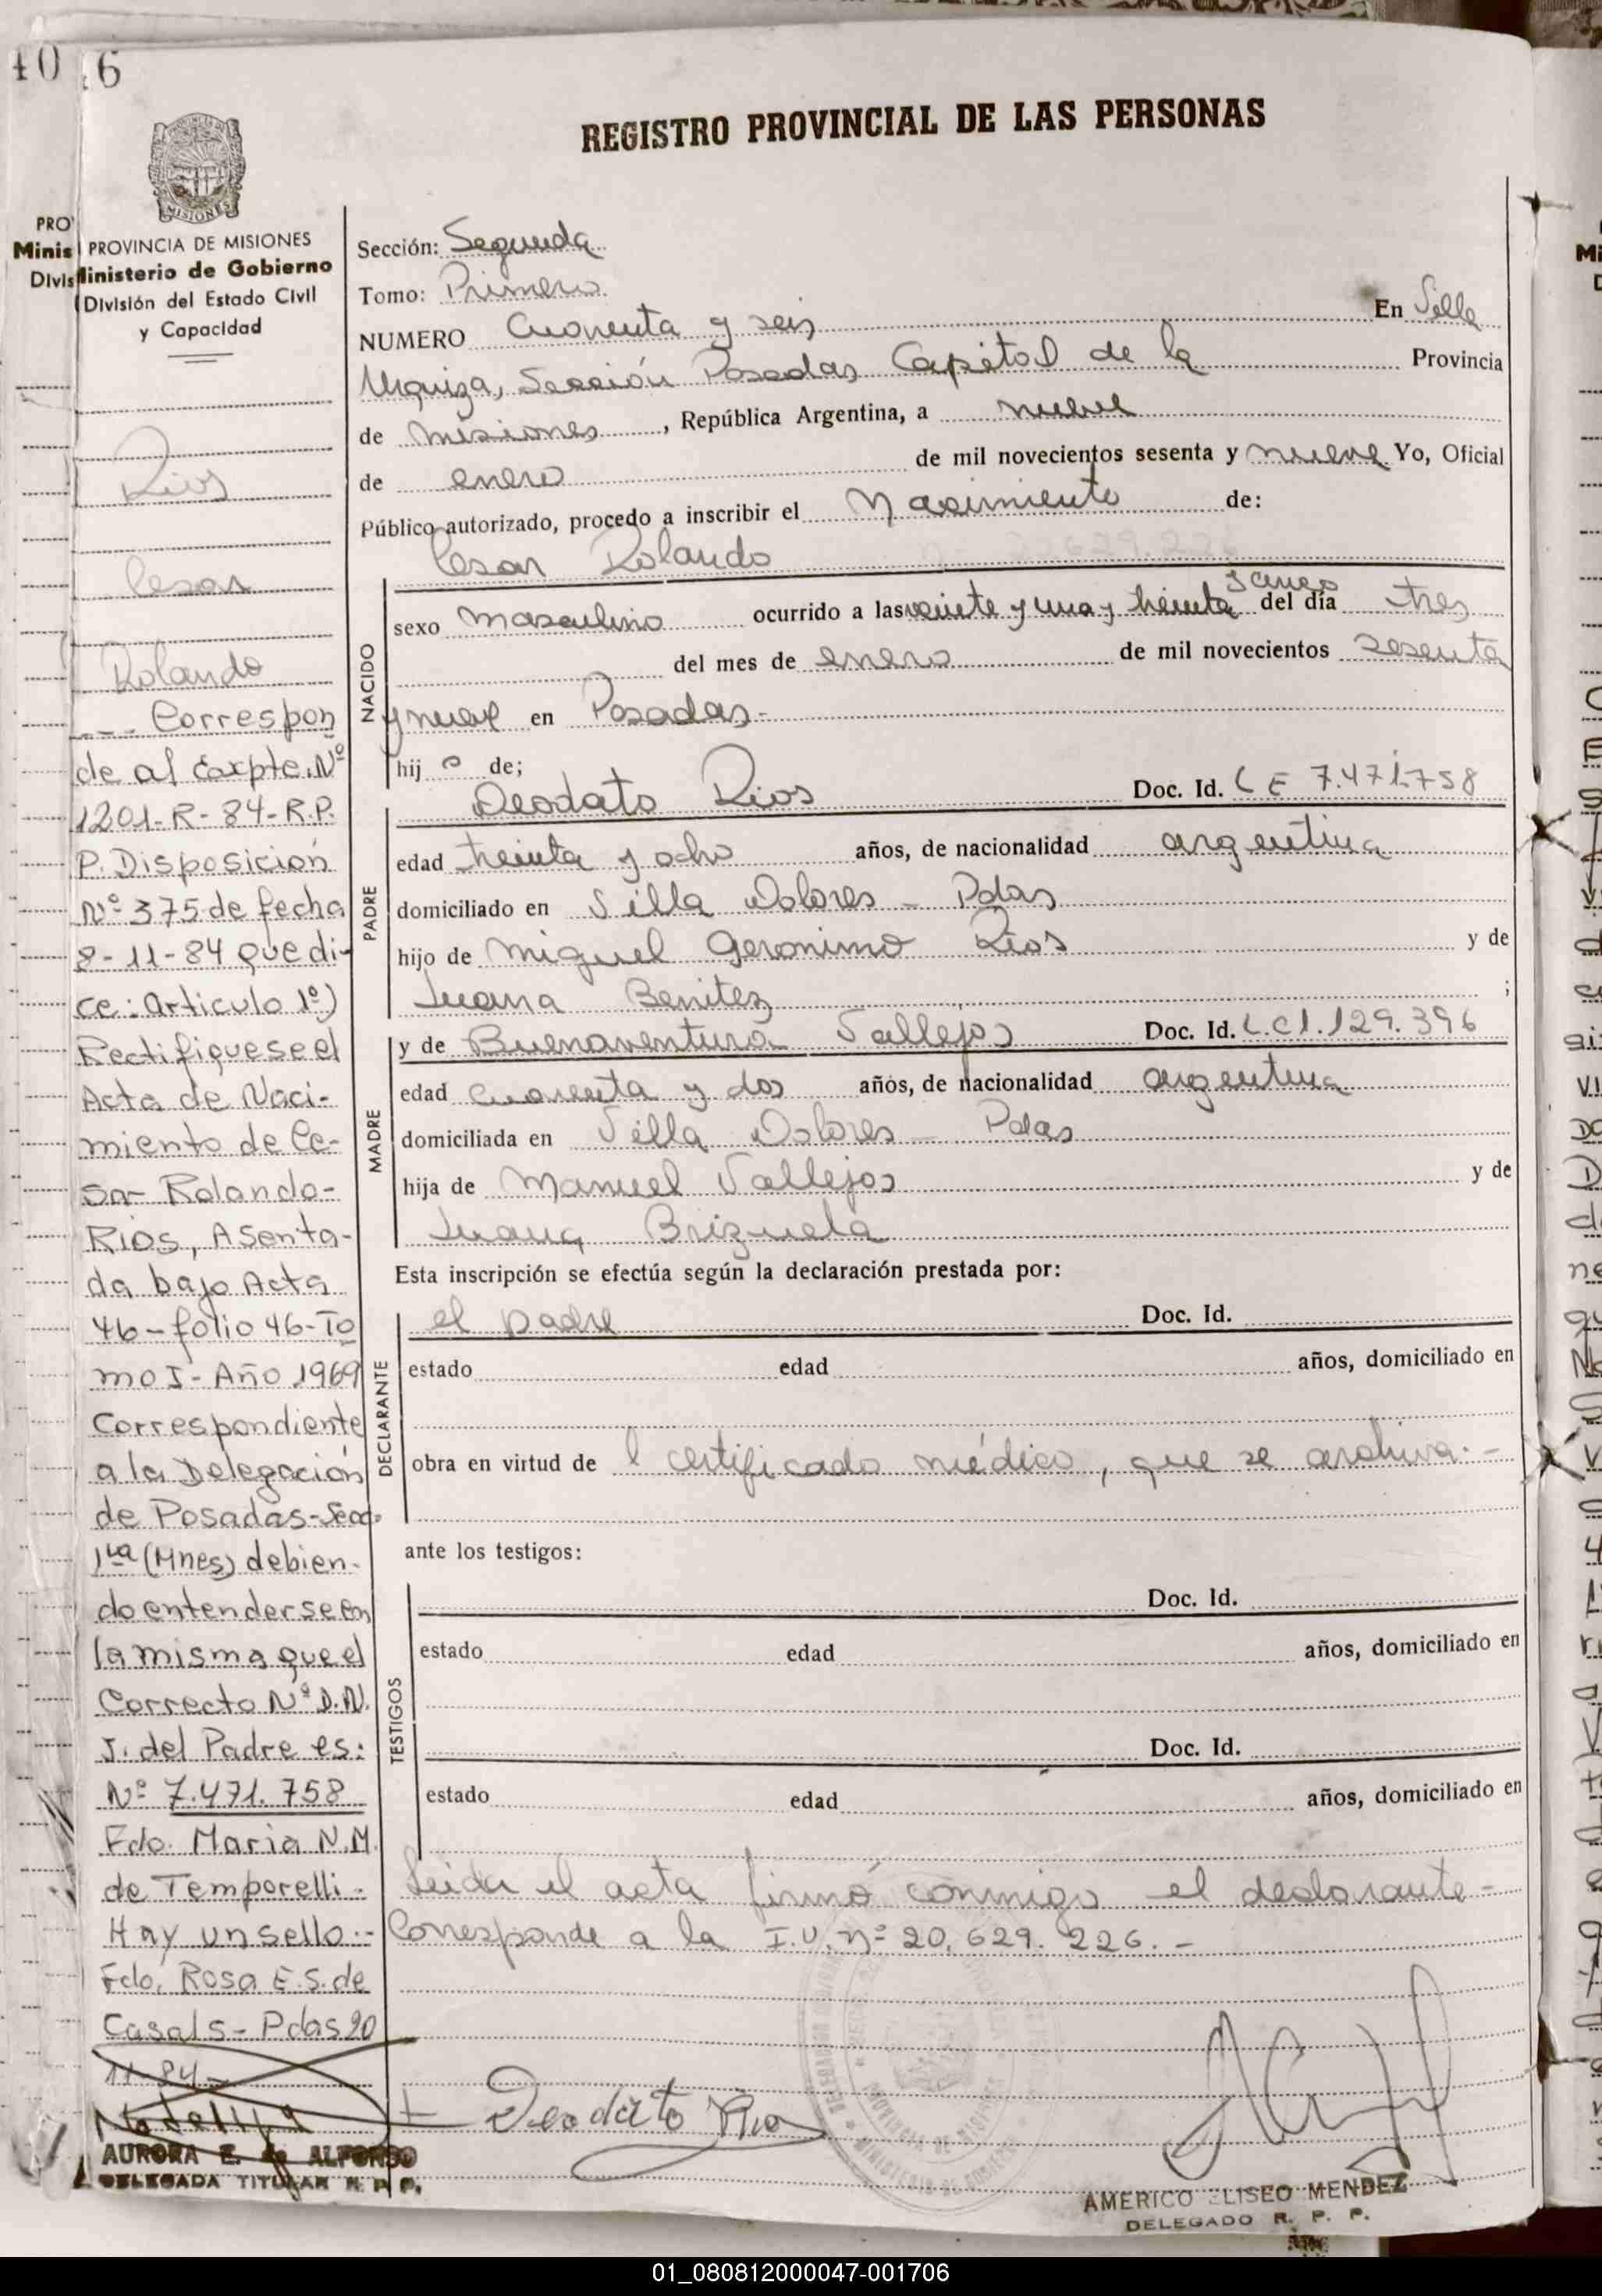 40
46
REGISTRO PROVINCIAL DE LAS PERSONAS
MISIONES
PRO
Minis
Divis
PROVINCIA DE MISIONES
Ministerio de Gobierno
División del Estado Civil
y Capacidad
Rios
Cesar
Rolando
---- Correspon
de al Expte. Nº
1201-R-84-R.P.
P. Disposición
Nº 375 de fecha
8-11-84 que di-
ce: Articulo 1º)
Rectifiquese el
Acta de Naci-
miento de Ce-
sar Rolando-
Rios, Asenta-
da bajo Acta
46-folio 46-To
mo I-Año 1969
Correspondiente
a la Delegación
de Posadas-Secc.
1ra (Mnes) debien-
do entenderse en
la misma que el
Correcto Nº D.N.
I. del Padre es:
Nº 7.471.758
Fdo. Maria N.M.
de Temporelli-
Hay un sello.-
Fdo. Rosa E.S. de
Casals-Pdas 20
11-84-
AURORA E. de ALFONSO
DELEGADA TITULAR R. P. P.
Sección: Segunda
Tomo: Primero
NUMERO Cuarenta y seis En Villa
Urquiza, Sección Posadas Capital de la Provincia
de Misiones, República Argentina, a nueve
de enero de mil novecientos sesenta y nueve Yo, Oficial
Público autorizado, procedo a inscribir el Nacimiento de:
Cesar Rolando
NACIDO
sexo masculino ocurrido a las veinte y una y treinta y cinco del día tres
del mes de enero de mil novecientos sesenta
y nueve en Posadas-
hijo de;
PADRE
Deodato Rios Doc. Id. L E 7.471.758
edad treinta y ocho años, de nacionalidad argentina
domiciliado en Villa Dolores - Pdas
hijo de Miguel Geronimo Rios y de
Juana Benitez ;
MADRE
y de Buenaventura Vallejos Doc. Id. L.C 1.129.396
edad cuarenta y dos años, de nacionalidad argentina
domiciliada en Villa Dolores - Pdas
hija de Manuel Vallejos y de
Juana Brizuela
Esta inscripción se efectúa según la declaración prestada por:
DECLARANTE
el padre Doc. Id.
estado edad años, domiciliado en
obra en virtud de l certificado médico, que se archiva.-
ante los testigos:
TESTIGOS
Doc. Id.
estado edad años, domiciliado en
Doc. Id.
estado edad años, domiciliado en
Leida el acta firmó conmigo el declarante-
Corresponde a la I.U. nº 20.629.226.-
Deodato Rios
AMERICO ELISEO MENDEZ
DELEGADO R. P. P.
01_080812000047-001706